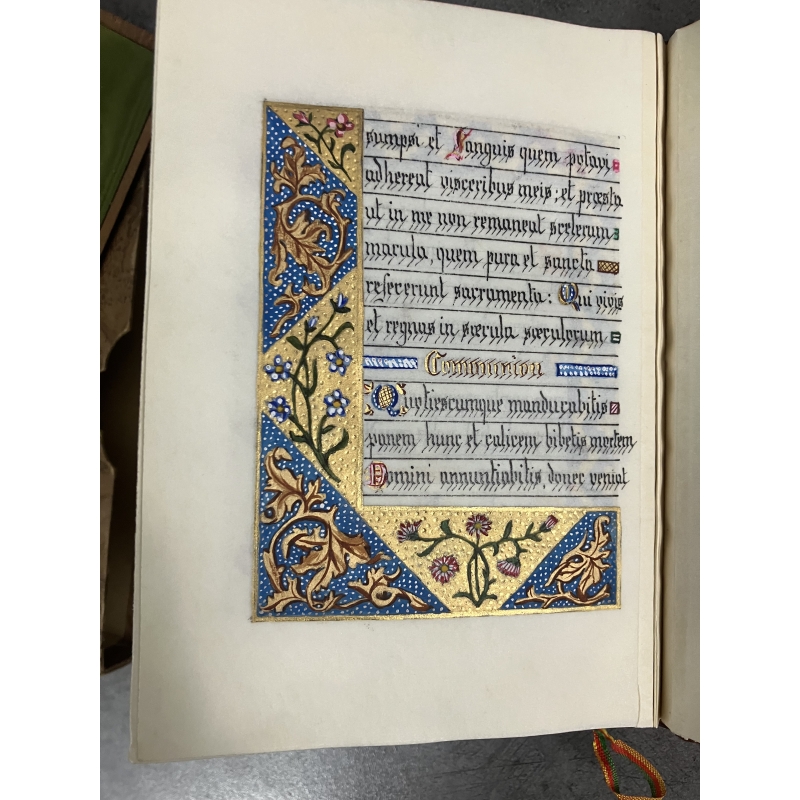 sumpsi et Sanguis quem potavi
adhereat visceribus meis; et præsta
ut in me non remaneat scelerum
macula, quem pura et sancta
refecerunt sacramenta: Qui vivis
et regnas in sæcula sæculorum
Communion
Quotiescumque manducabitis
panem hunc et calicem bibetis mortem
Domini annuntiabitis, donec veniat